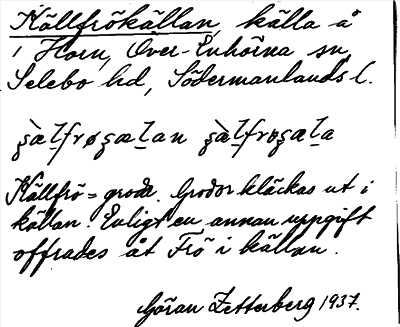 Källfrökällan, källa å
i Horn, Över-Enhörna sn,
Selebo hd, Södermanlands l.
Källfrö = groda. Grodor kläckas ut i
källan. Enligt en annan uppgift
offrades åt Frö i källan.
Göran Zetterberg 1937.